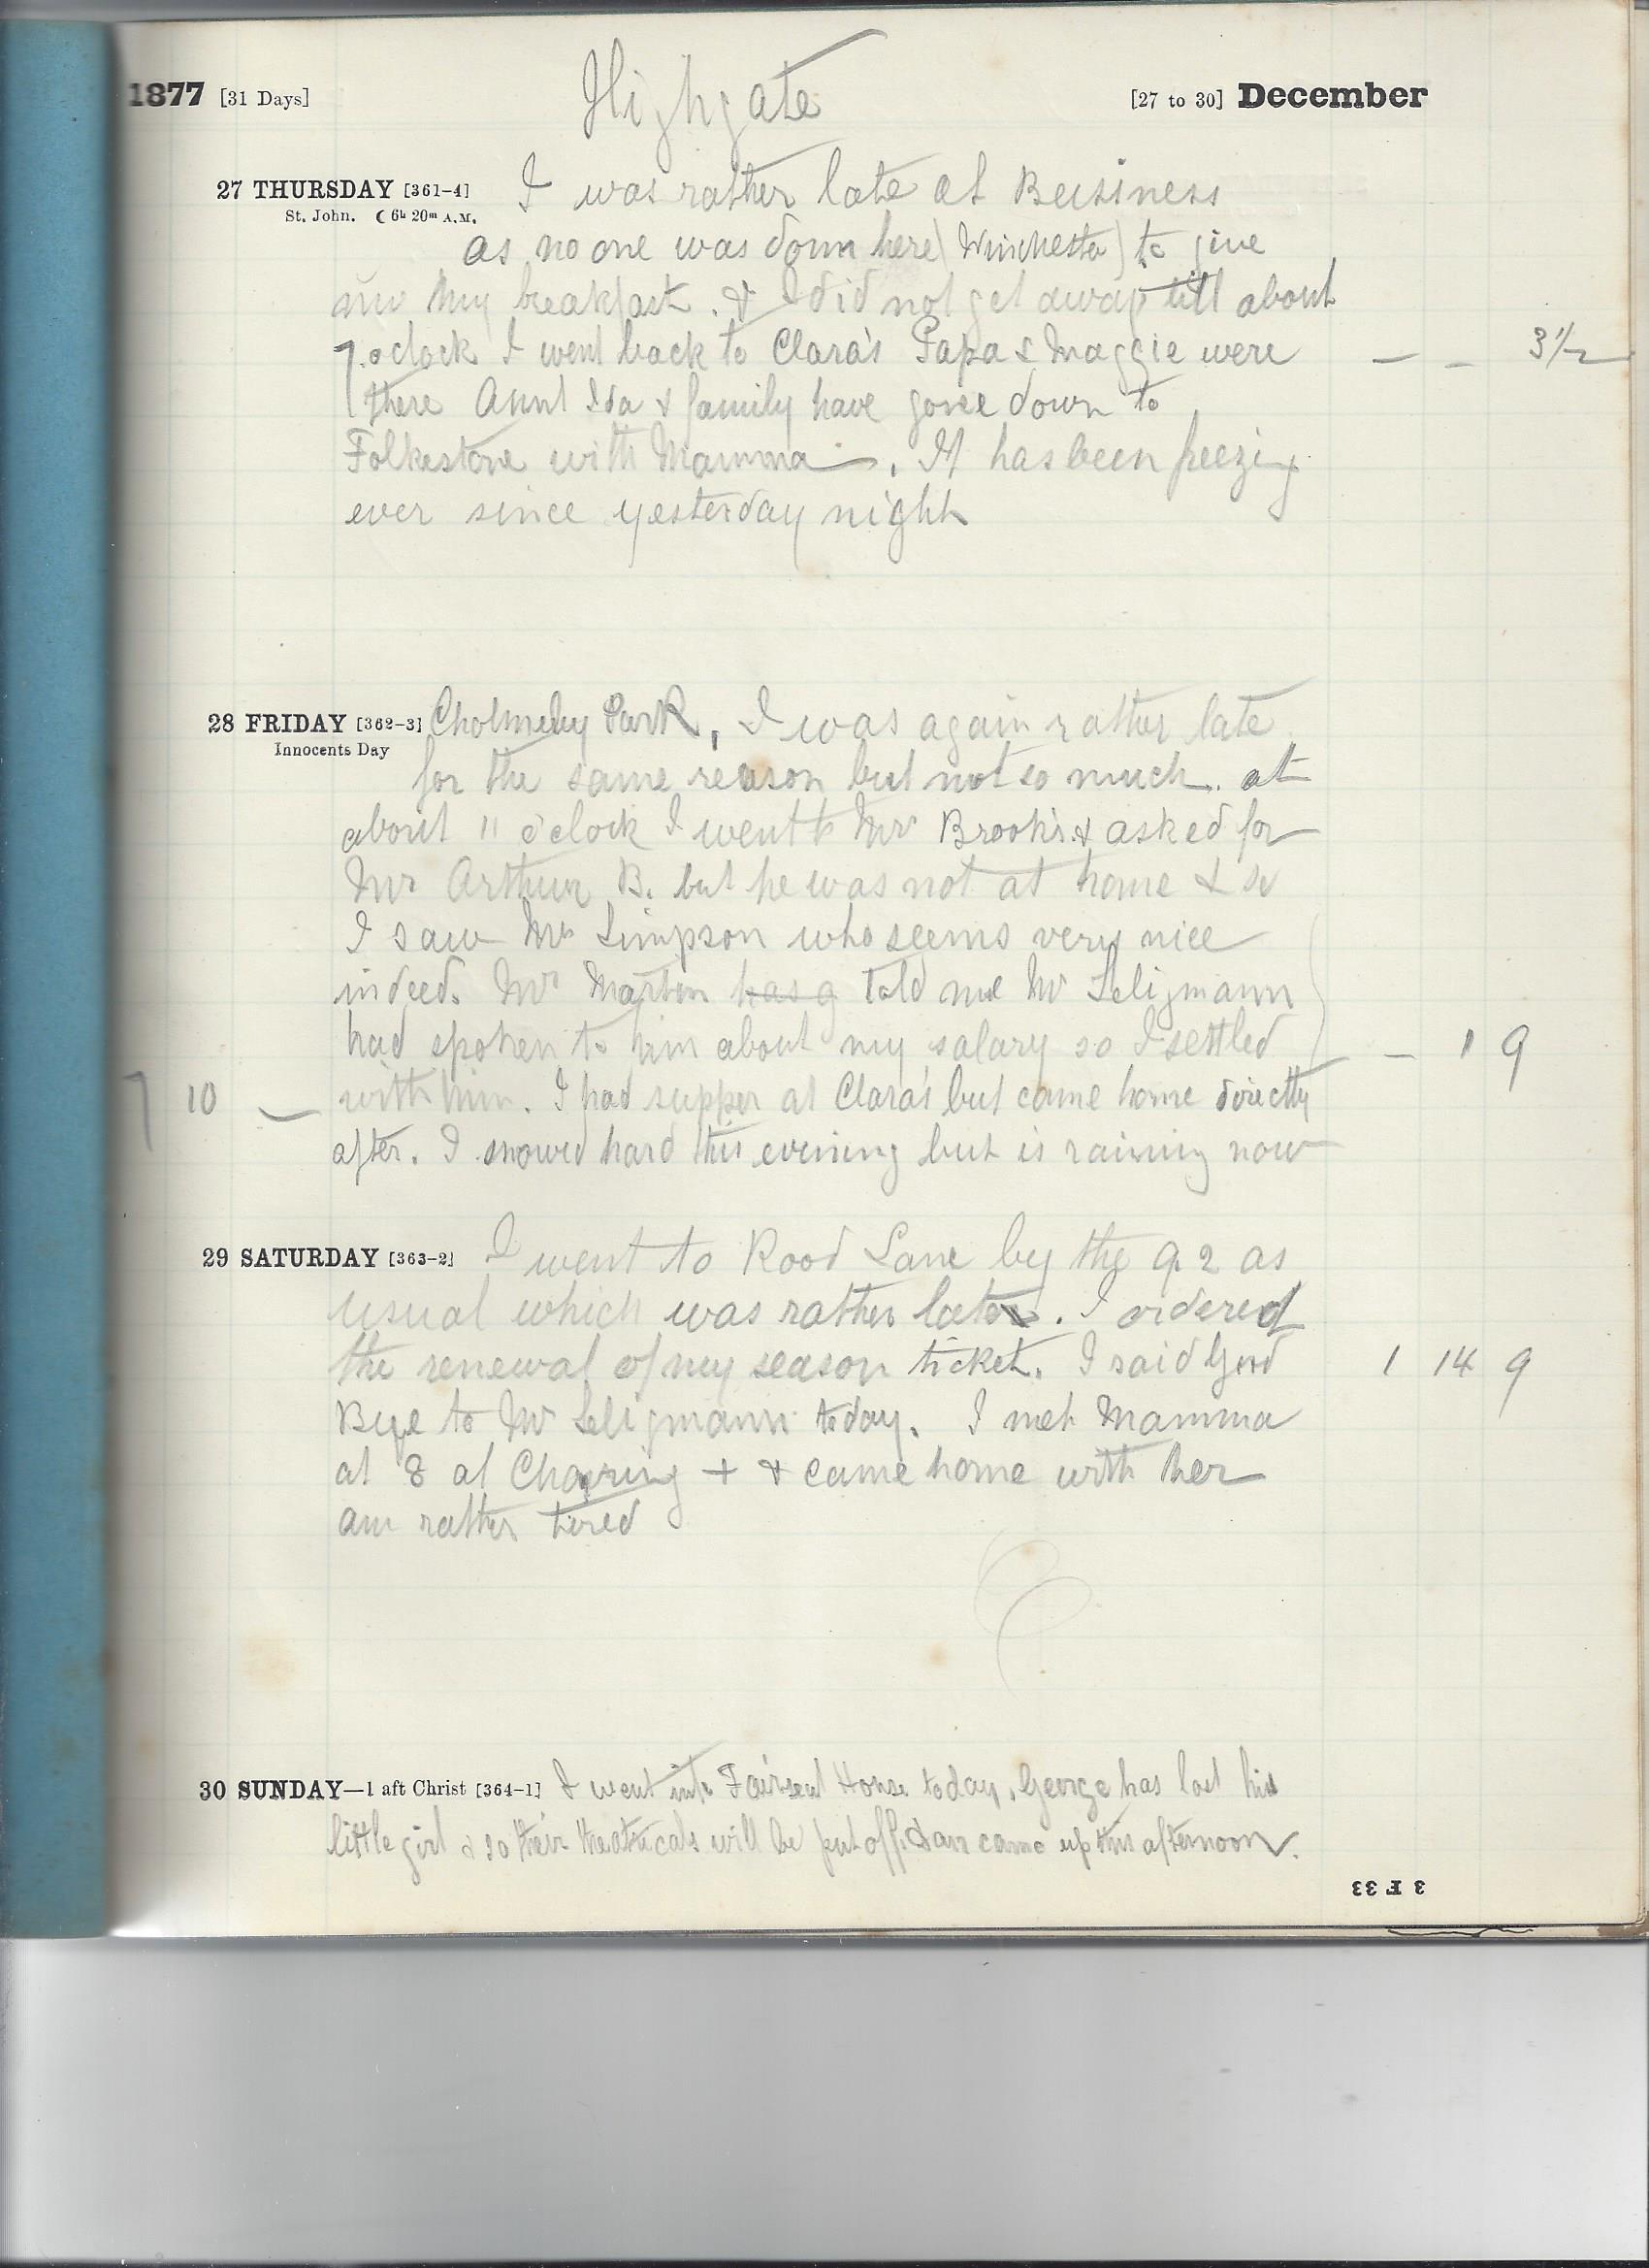 Highgate
1877 [31 Days] [27 to 30] December
27 THURSDAY [361-4] I was rather late at Business
St. John. ☾ 6h 20m A.M.
as no one was down here (Winchester) to give
me my breakfast. & I did not get away till about
7.oclock I went back to Clara's Papa & Maggie were — - 3½
there Aunt Ida & family have gone down to
Folkestone with Mamma. It has been freezing
ever since yesterday night
28 FRIDAY [362-3] Cholmeley Park, I was again rather late
Innocents Day
for the same reason but not so much. at
about 11 o'clock I went to Mr Brook's & asked for
Mr Arthur B. but he was not at home & so
I saw Mr Simpson who seems very nice
indeed. Mr Martin has g told me Mr Seligmann
had spoken to him about my salary so I settled — 1 9
7 10 — with him. I had supper at Clara's but came home directly
after. I snowed hard this evening but is raining now
29 SATURDAY [363-2] I went to Rood Lane by the 9.2 as
usual which was rather late. I ordered
the renewal of my season ticket. I said Good 1 14 9
Bye to Mr Seligmann today. I met Mamma
at 8 at Charing + & came home with her
am rather tired
30 SUNDAY—1 aft Christ [364-1] I went into Fairseat House today. George has lost his
little girl & so their theatricals will be put off. came up this afternoon.
3 F 33